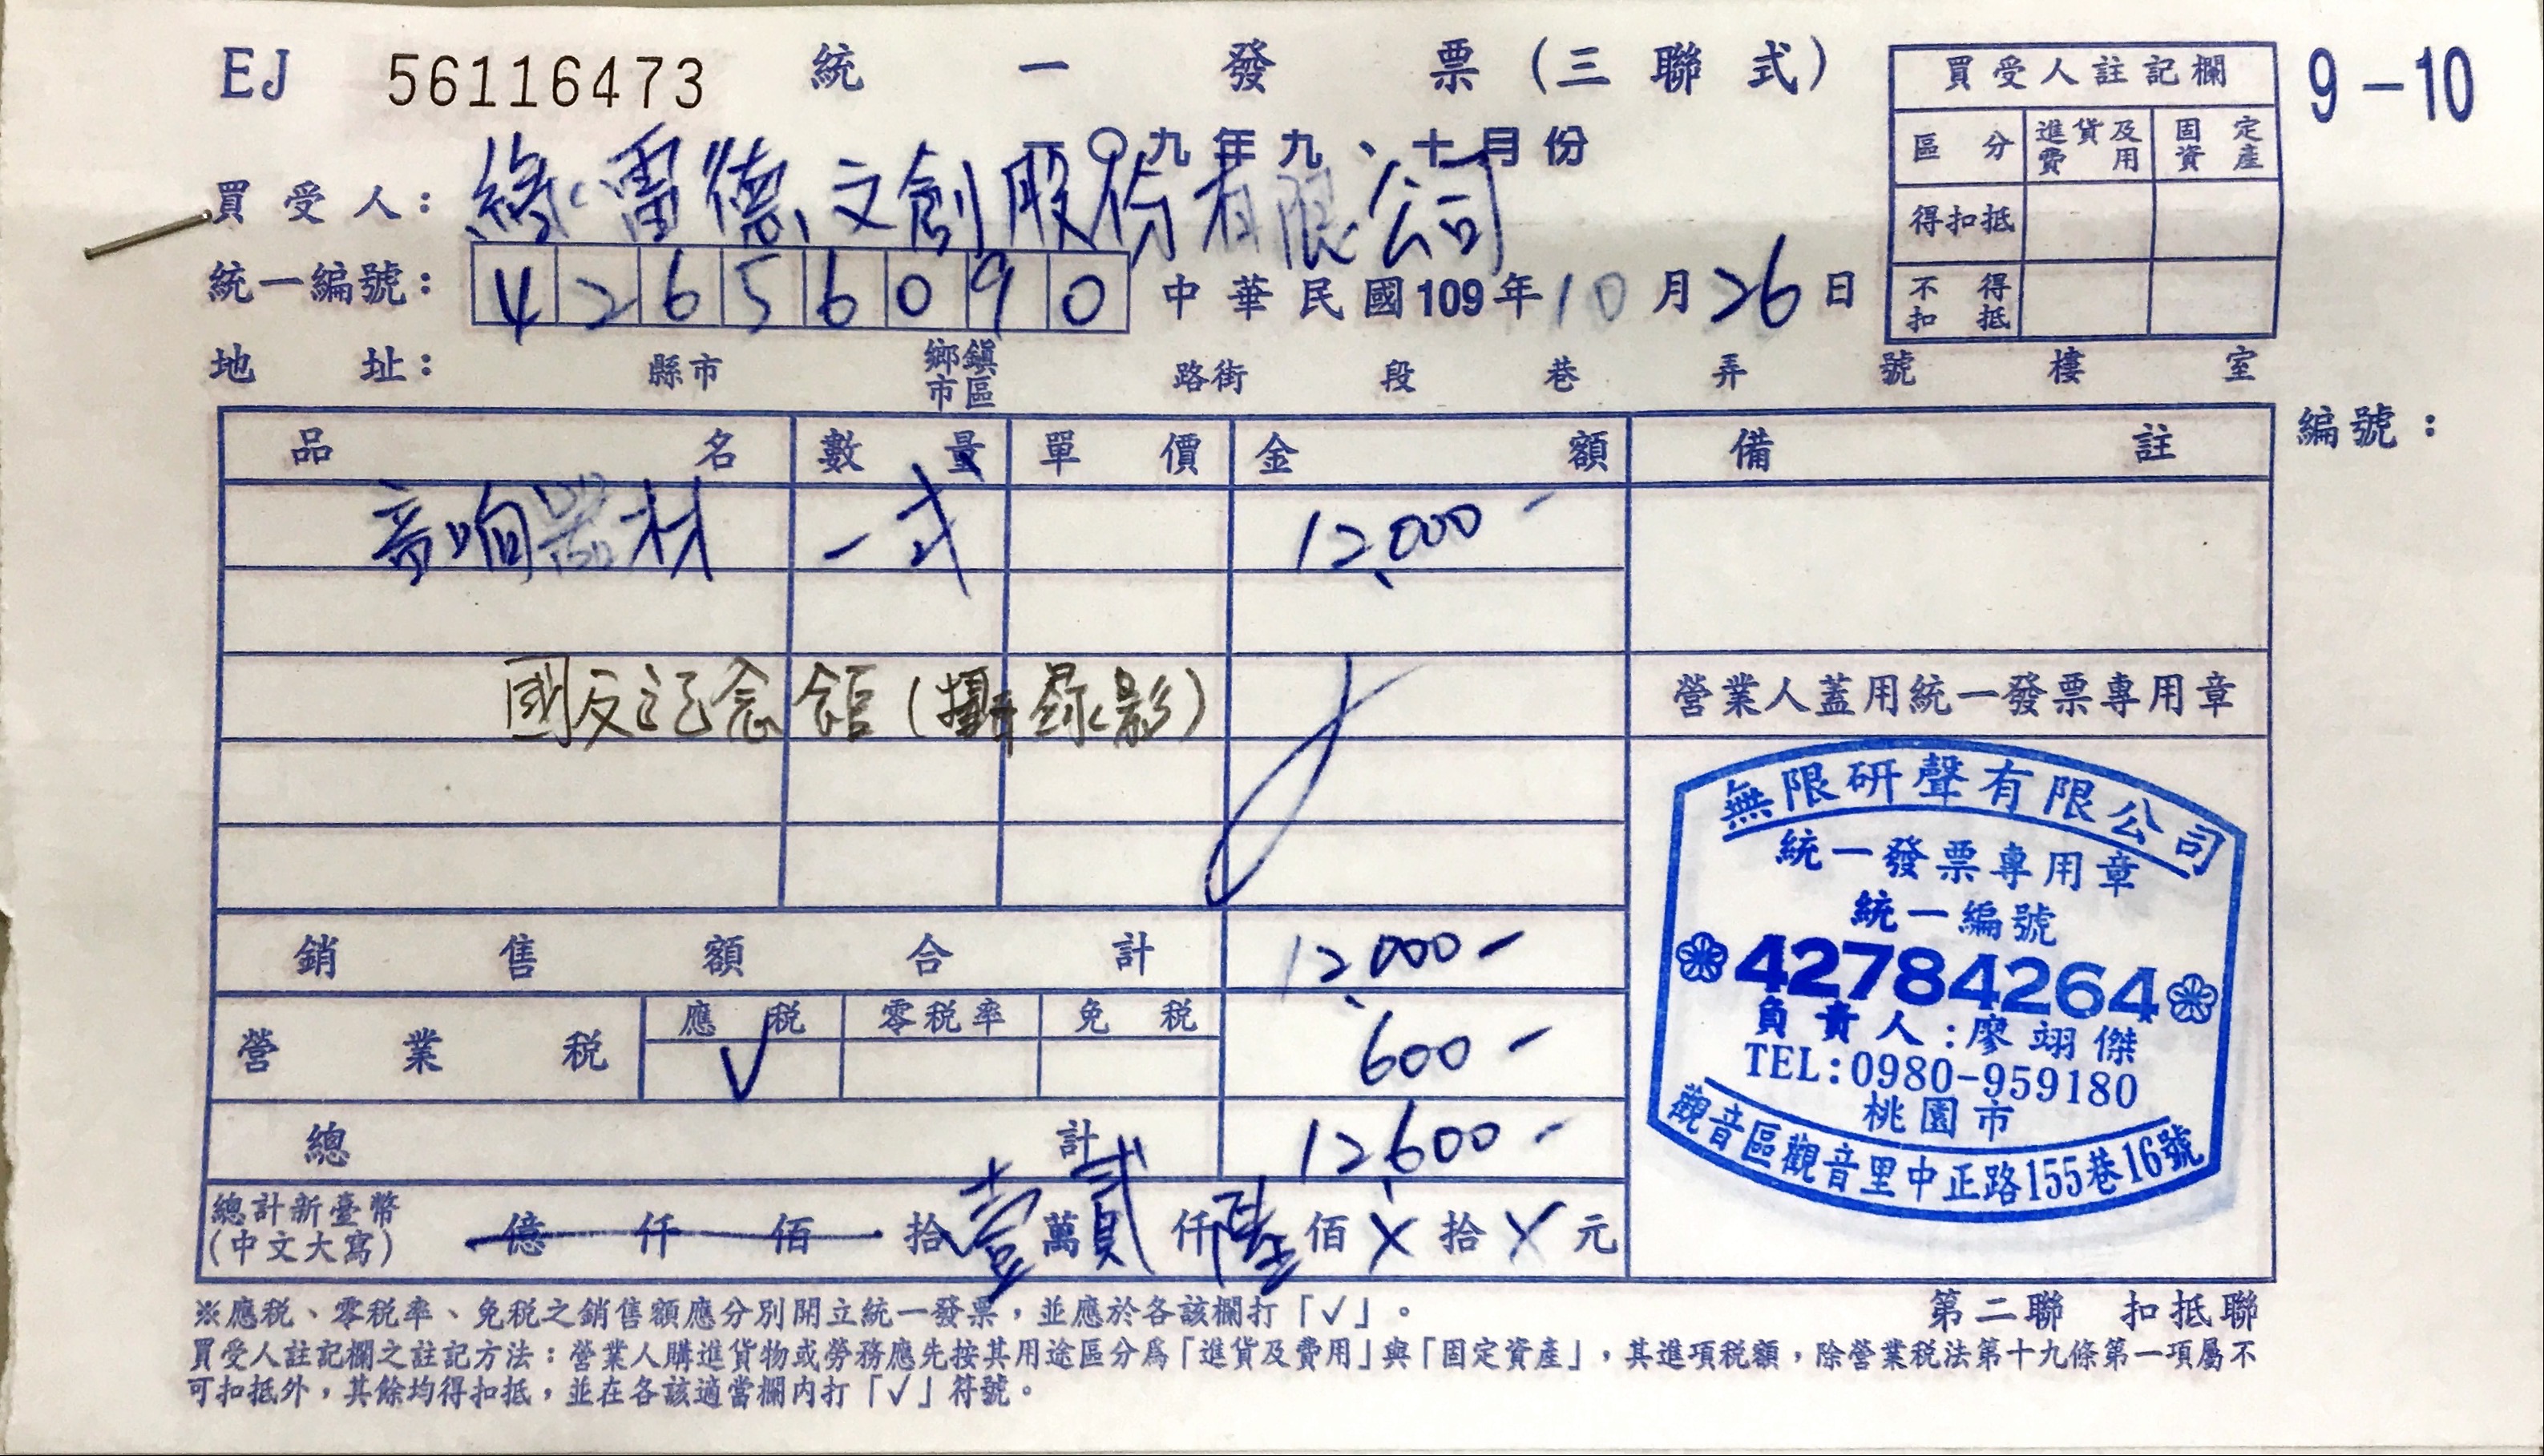 EJ 56116473 統一發票（三聯式） 9-10
一〇九年九、十月份
買受人： 綠雷德文創股份有限公司
統一編號： 42656090 中華民國109年10月26日
地址： 縣市 鄉鎮市區 路街 段 巷 弄 號 樓 室
買受人註記欄
區分 進貨及費用 固定資產
得扣抵
不得扣抵
品名 數量 單價 金額 備註 編號：
音响器材 一式 12,000-
國父記念館（攝錄影）
營業人蓋用統一發票專用章
銷售額合計 12,000-
營業稅 應稅 零稅率 免稅
√ 600-
總計 12,600-
總計新臺幣（中文大寫） 億仟佰拾壹萬貳仟陸佰X拾X元
無限研聲有限公司
統一發票專用章
統一編號
42784264
負責人：廖翊傑
TEL:0980-959180
桃園市
觀音區觀音里中正路155巷16號
第二聯 扣抵聯
※應稅、零稅率、免稅之銷售額應分別開立統一發票，並應於各該欄打「√」。
買受人註記欄之註記方法：營業人購進貨物或勞務應先按其用途區分爲「進貨及費用」與「固定資產」，其進項稅額，除營業稅法第十九條第一項屬不
可扣抵外，其餘均得扣抵，並在各該適當欄內打「√」符號。